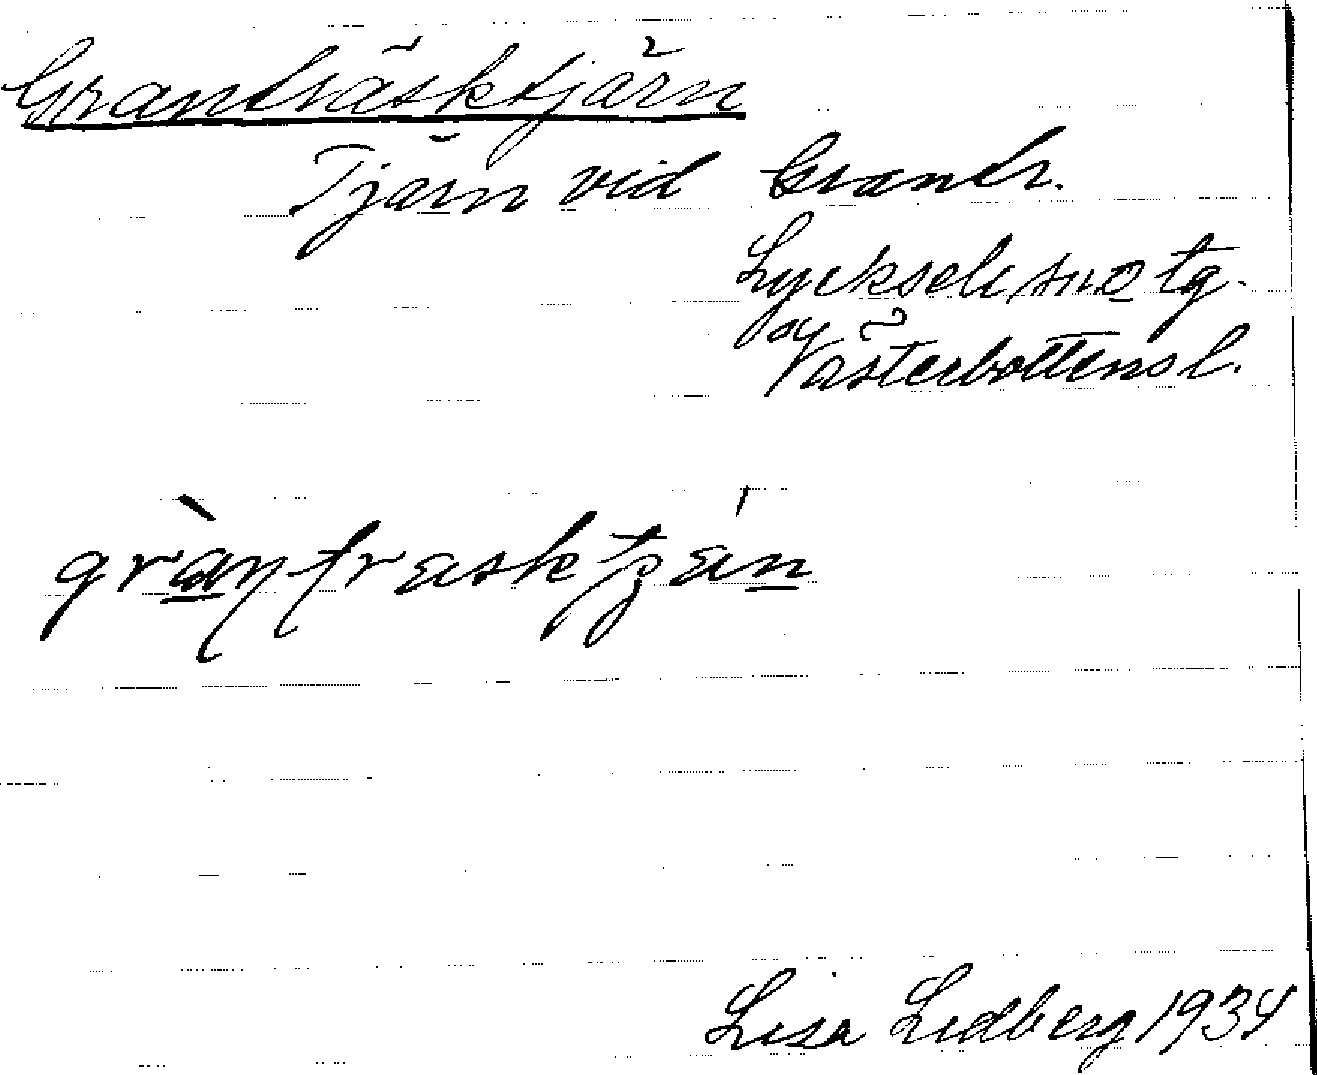 Granträsktjärn
Tjärn vid Grantr.
Lycksele sn o tg.
av Västerbottens l.
Lisa Lidberg 1934